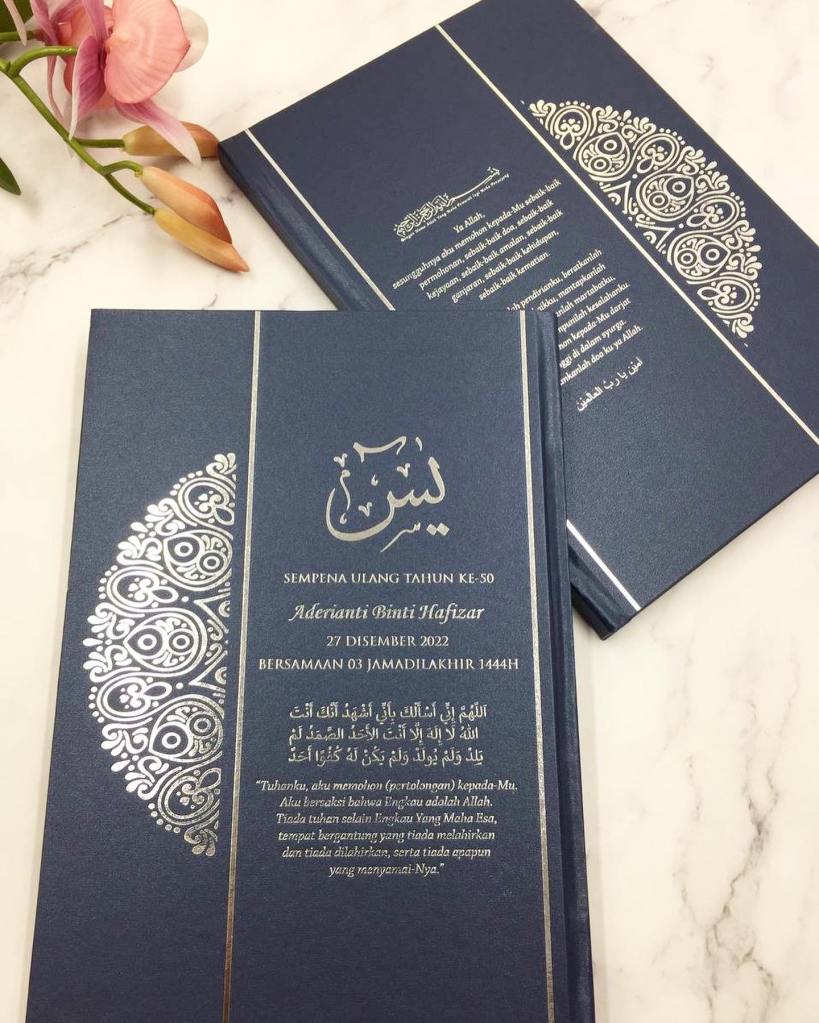 يس
SEMPENA ULANG TAHUN KE-50
Aderianti Binti Hafizar
27 DISEMBER 2022
BERSAMAAN 03 JAMADILAKHIR 1444H
اَللَّهُمَّ إِنِّي أَسْأَلُكَ بِأَنِّي أَشْهَدُ أَنَّكَ أَنْتَ
اللهُ لَا إِلَهَ إِلَّا أَنْتَ الأَحَدُ الصَّمَدُ لَمْ
يَلِدْ وَلَمْ يُولَدْ وَلَمْ يَكُنْ لَهُ كُفُوًا أَحَدٌ
“Tuhanku, aku memohon (pertolongan) kepada-Mu.
Aku bersaksi bahwa Engkau adalah Allah.
Tiada tuhan selain Engkau Yang Maha Esa,
tempat bergantung yang tiada melahirkan
dan tiada dilahirkan, serta tiada apapun
yang menyamai-Nya.”
بسم الله الرحمن الرحيم
Dengan Nama Allah Yang Maha Pemurah Lagi Maha Penyayang
Ya Allah,
sesungguhnya aku memohon kepada-Mu sebaik-baik
permohonan, sebaik-baik doa, sebaik-baik
kejayaan, sebaik-baik amalan, sebaik-baik
ganjaran, sebaik-baik kehidupan,
sebaik-baik kematian.
lah pendirianku, beratkanlah
aikku, mantapkanlah
nlah martabatku,
mpunilah kesalahanku
hon kepada-Mu darjat
ggi di dalam syurga.
nkanlah doa ku ya Allah.
آمين يا رب العالمين